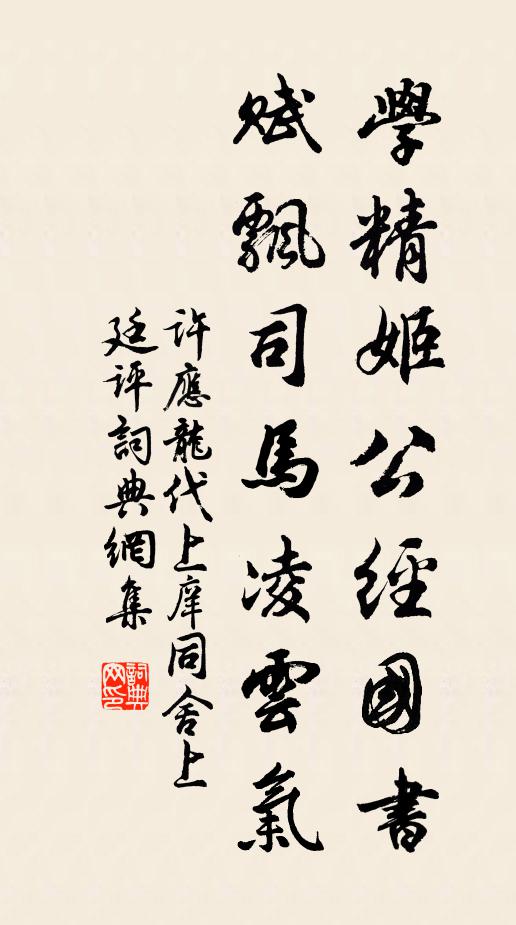 學精姬公經國書
賦飄司馬凌雲氣
许應龍代上庠同舍上
廷评詞典網集
詞典網印